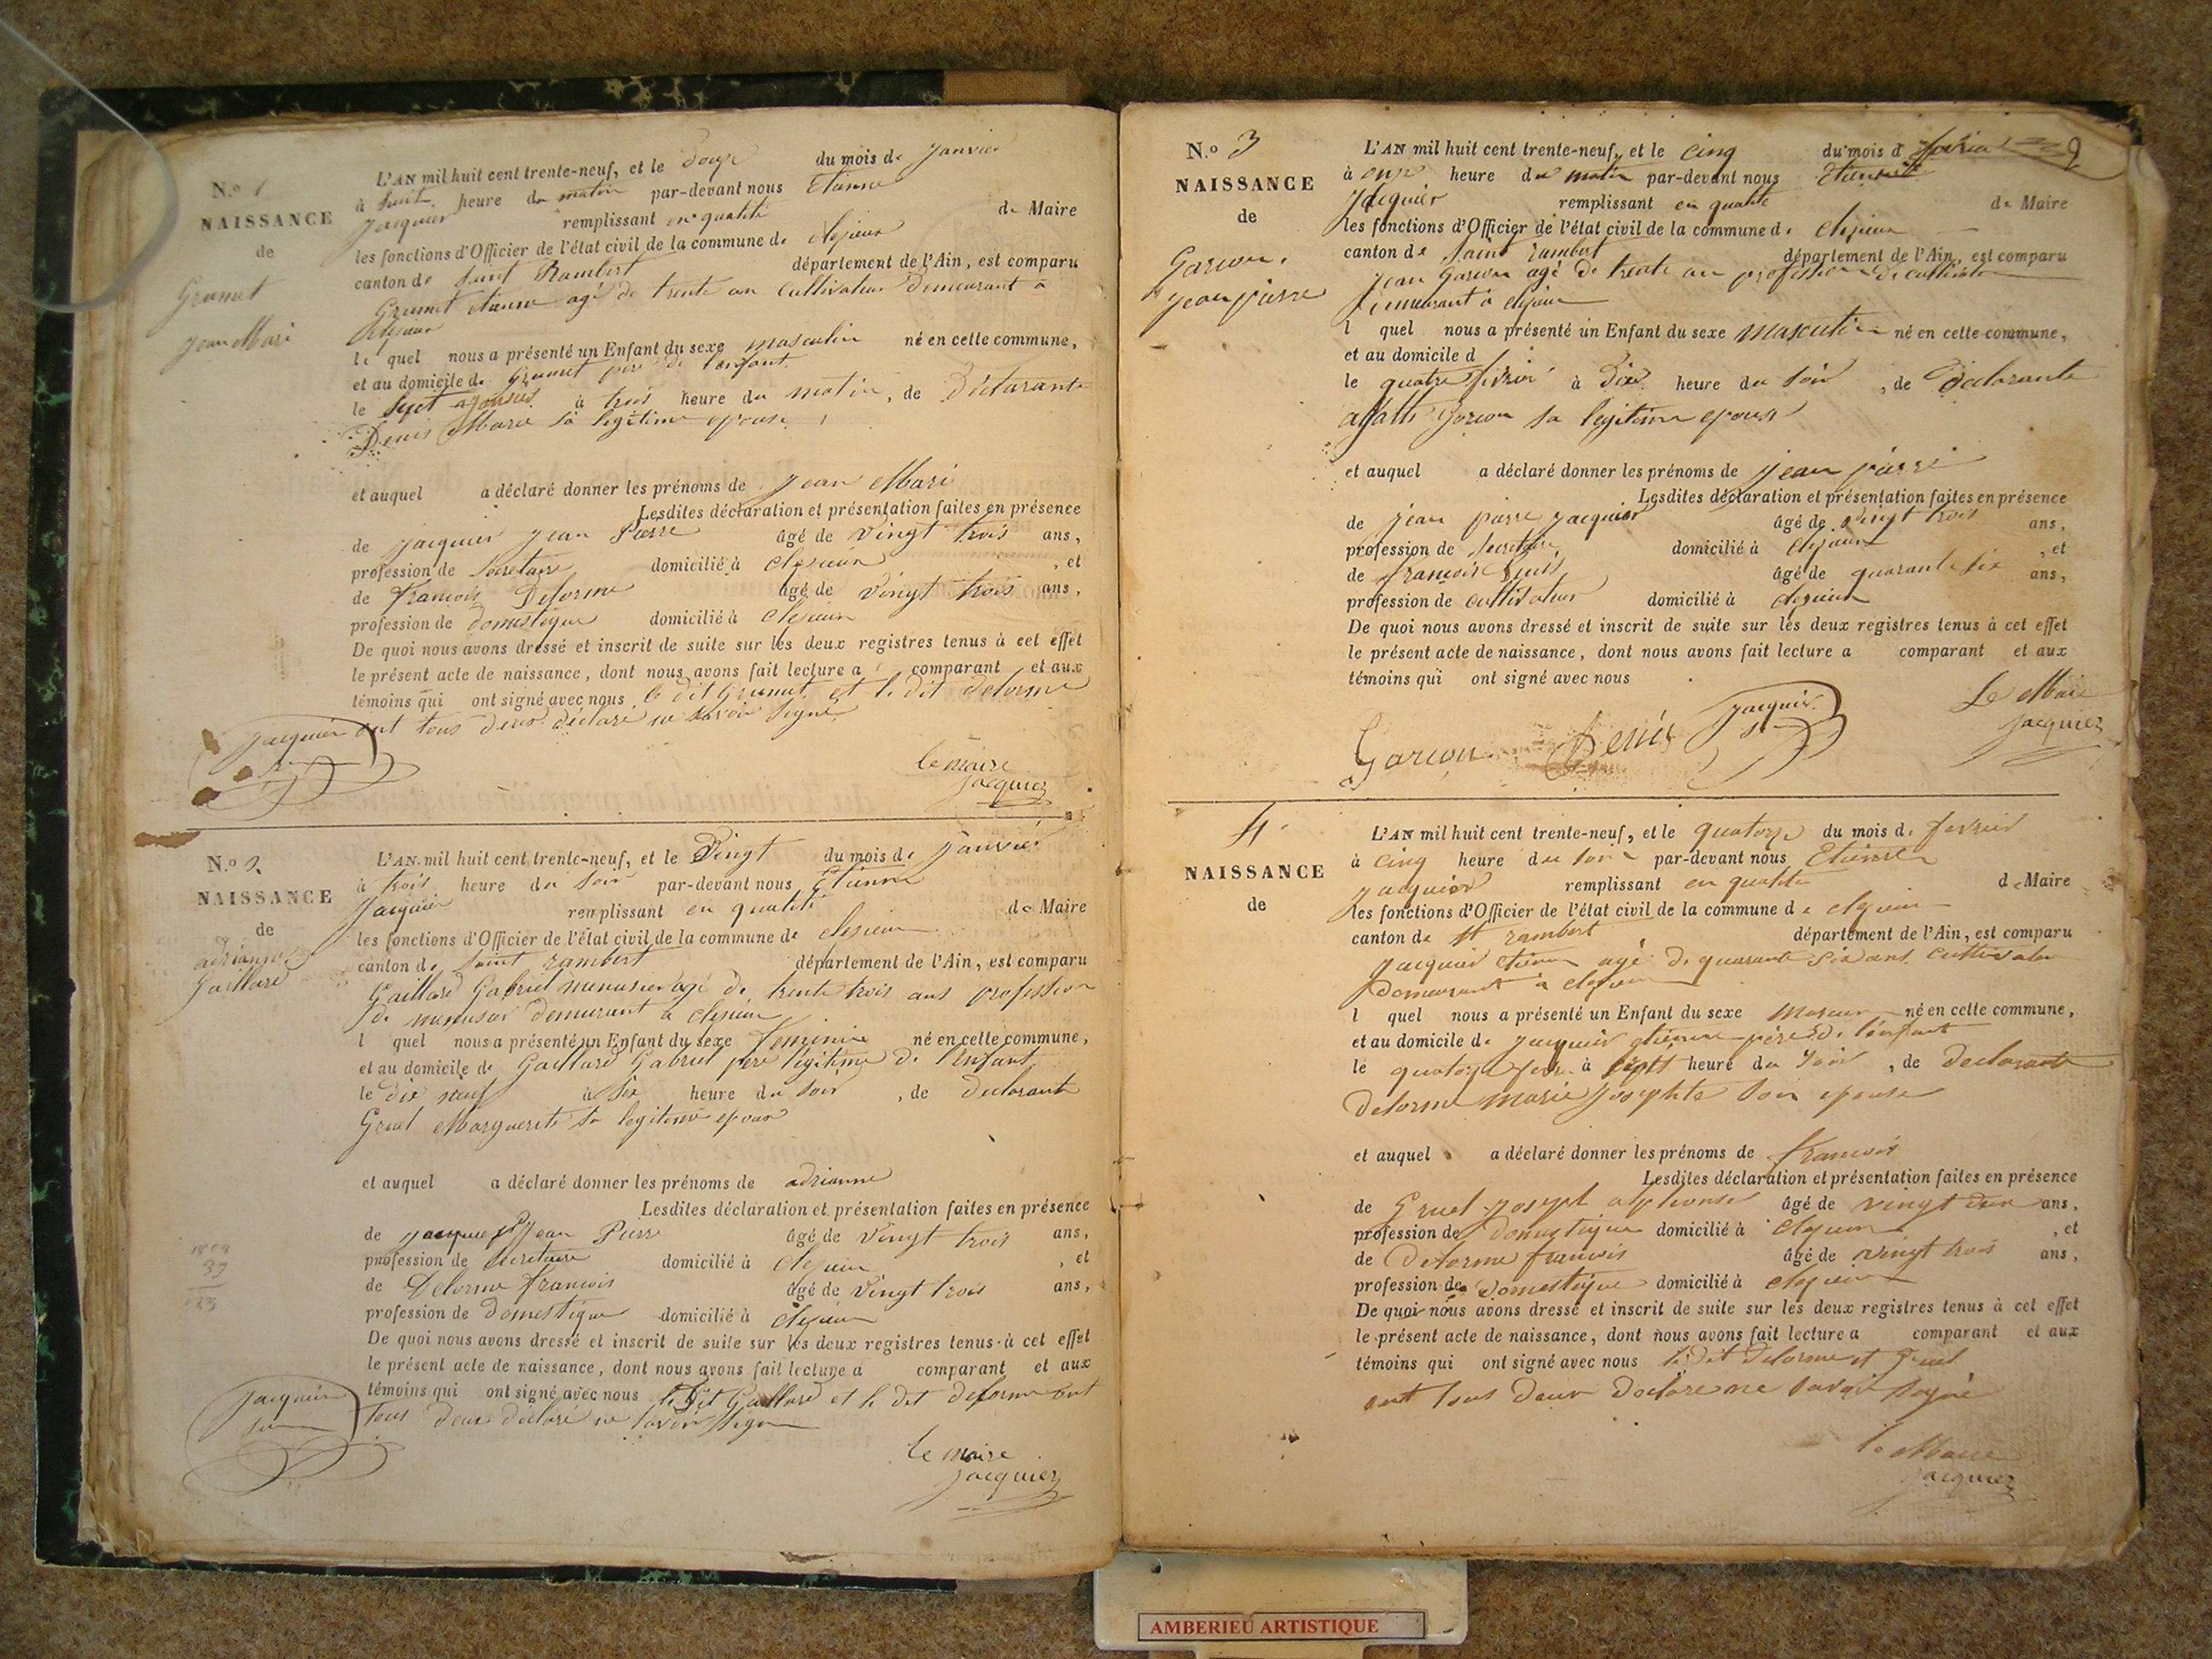 N.o 1
NAISSANCE
de
Grumet
Jean Mari
L'AN mil huit cent trente-neuf, et le douze du mois de janvier
à huit heure du matin par-devant nous Etienne
Jacquier remplissant en qualité de Maire
les fonctions d'Officier de l'état civil de la commune de
canton de Saint Rambert département de l'Ain, est comparu
Grumet etienne agé de trente an Cultivateur Demeurant à
le quel nous a présenté un Enfant du sexe masculin né en cette commune,
et au domicile de Grumet pere de l'enfant.
le à trois heure du matin, de Déclarante
Denis Marie sa légitime epouse
et auquel a déclaré donner les prénoms de Jean Mari
Lesdites déclaration et présentation faites en présence
de jacquier jean Pierre âgé de vingt trois ans,
profession de Secretaire domicilié à , et
de francois Delorme âgé de vingt trois ans,
profession de domestique domicilié à
De quoi nous avons dressé et inscrit de suite sur les deux registres tenus à cet effet
le présent acte de naissance, dont nous avons fait lecture a comparant et aux
témoins qui ont signé avec nous le dit Grumet et le dit delorme
ont tous deux déclaré ne savoir signé
jacquier
le maire
jacquier
N.o 2
NAISSANCE
de
adrianne
Gaillard
L'AN mil huit cent trente-neuf, et le Vingt du mois de janvier
à trois heure du soir par-devant nous Etienne
Jacquier remplissant en qualité de Maire
les fonctions d'Officier de l'état civil de la commune de
canton de Saint rambert département de l'Ain, est comparu
Gaillard Gabriel menusier agé de trente trois ans profession
de menusier demeurant a
l quel nous a présenté un Enfant du sexe feminine né en cette commune,
et au domicile de Gaillard Gabriel pere légitime de l'enfant
le dix neuf à six heure du soir, de declarante
Gruel Marguerite sa legitime epouse
et auquel a déclaré donner les prénoms de adrianne
Lesdites déclaration et présentation faites en présence
de jacquier Jean Pierre âgé de vingt trois ans,
profession de secretaire domicilié à , et
de Delorme francois âgé de vingt trois ans,
profession de domestique domicilié à
De quoi nous avons dressé et inscrit de suite sur les deux registres tenus à cet effet
le présent acte de naissance, dont nous avons fait lecture a comparant et aux
témoins qui ont signé avec nous le dit Gaillard et le dit delorme ont
tous deux déclaré ne savoir signe
jacquier
le maire
jacquier
N.o 3
NAISSANCE
de
Garcon
jean pierre
9
L'AN mil huit cent trente-neuf, et le cinq du mois d
à onze heure du matin par-devant nous Etienne
Jacquier remplissant en qualité de Maire
les fonctions d'Officier de l'état civil de la commune d
canton de saint rambert département de l'Ain, est comparu
jean Garcon agé de trente an profession de cultivateur
demeurant à
l quel nous a présenté un Enfant du sexe masculin né en cette commune,
et au domicile d
le quatre fevrier à dix heure du soir, de declarante
Garcon sa legitime epouse
et auquel a déclaré donner les prénoms de jean pierre
Lesdites déclaration et présentation faites en présence
de jean pierre jacquier âgé de vingt trois ans,
profession de secretaire, domicilié à , et
de francois âgé de quarante six ans,
profession de cultivateur domicilié à
De quoi nous avons dressé et inscrit de suite sur les deux registres tenus à cet effet
le présent acte de naissance, dont nous avons fait lecture a comparant et aux
témoins qui ont signé avec nous
Garcon Denis jacquier Le Maire
jacquier
4
NAISSANCE
de
L'AN mil huit cent trente-neuf, et le quatorze du mois de fevrier
à cinq heure du soir par-devant nous Etienne
jacquier remplissant en qualité de Maire
les fonctions d'Officier de l'état civil de la commune de
canton de st rambert département de l'Ain, est comparu
jacquier etienne agé de quarante six ans cultivateur
demeurant à
l quel nous a présenté un Enfant du sexe né en cette commune,
et au domicile de jacquier etienne père de l'enfant
le quatorze à sept heure du soir, de declarante
Delorme marie josephte son epouse
et auquel a déclaré donner les prénoms de francois
Lesdites déclaration et présentation faites en présence
de Gruel joseph alphonse âgé de vingt ans,
profession de domestique domicilié à , et
de Delorme francois âgé de vingt trois ans,
profession de domestique domicilié à
De quoi nous avons dressé et inscrit de suite sur les deux registres tenus à cet effet
le présent acte de naissance, dont nous avons fait lecture a comparant et aux
témoins qui ont signé avec nous le dit delorme et gruel
ont tous deux declare ne savoir signé
le Maire
jacquier
AMBERIEU ARTISTIQUE